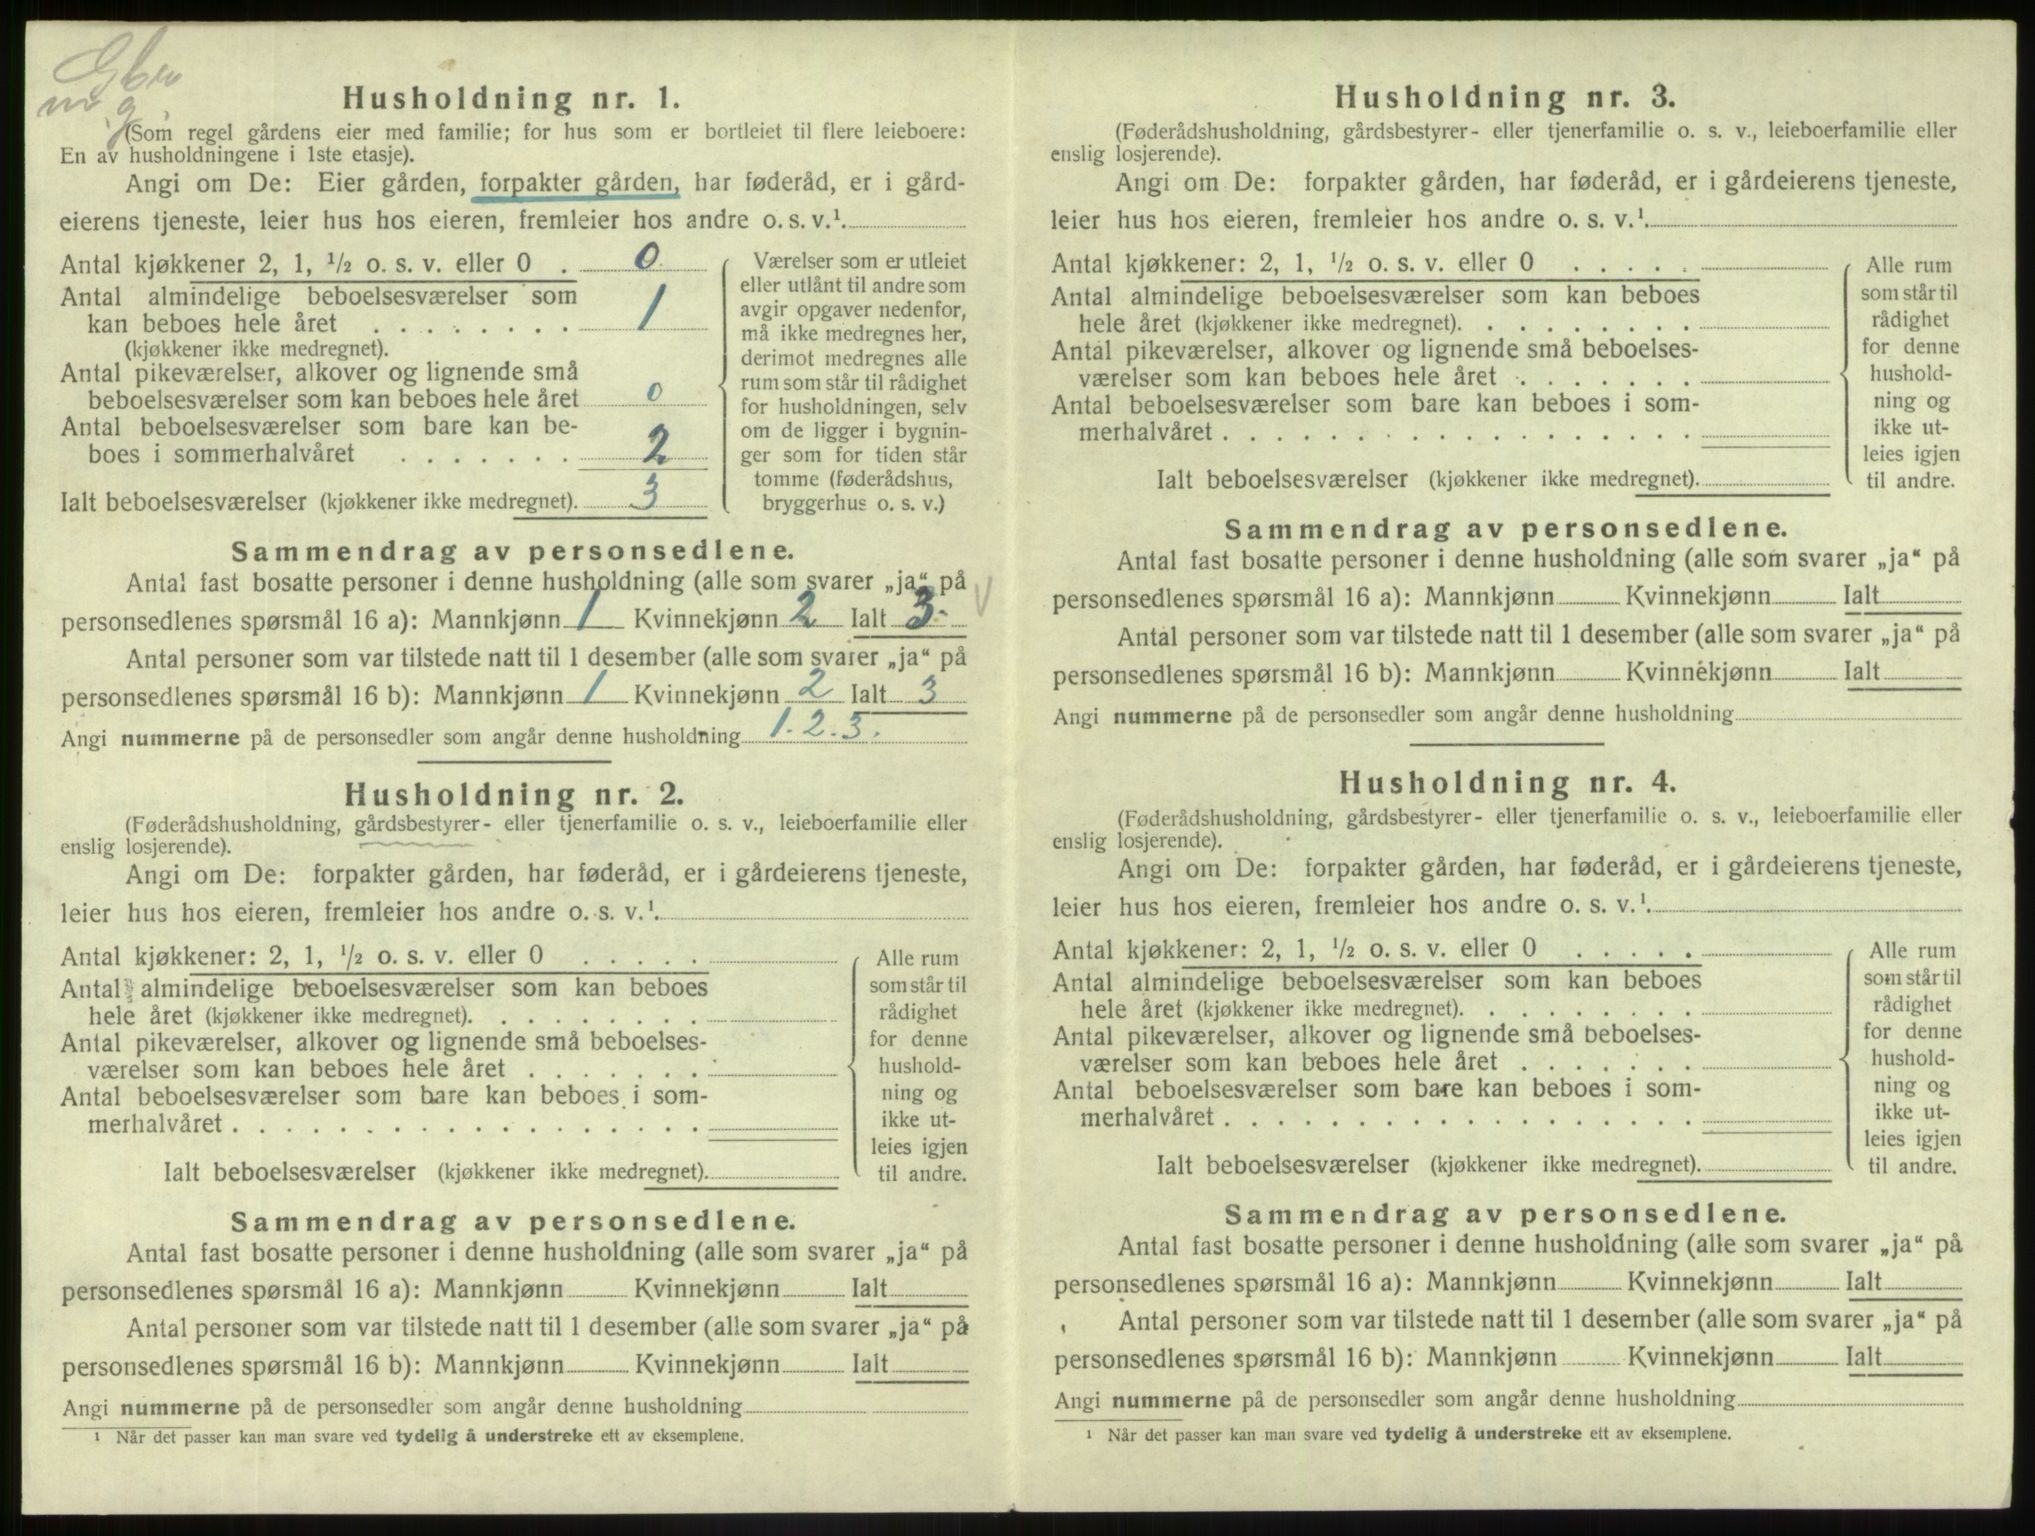 m g
Husholdning nr. 1.
(Som regel gårdens eier med familie; for hus som er bortleiet til flere leieboere:
En av husholdningene i 1ste etasje).
Angi om De: Eier gården, forpakter gården, har føderåd, er i gård-
eierens tjeneste, leier hus hos eieren, fremleier hos andre o. s. v.¹
Antal kjøkkener 2, 1, ½ o. s. v. eller 0 . 0
Antal almindelige beboelsesværelser som
kan beboes hele året . . . . . . . . 1
(kjøkkener ikke medregnet).
Antal pikeværelser, alkover og lignende små
beboelsesværelser som kan beboes hele året 0
Antal beboelsesværelser som bare kan be-
boes i sommerhalvåret . . . . . . . 2
Ialt beboelsesværelser (kjøkkener ikke medregnet). 3
Værelser som er utleiet
eller utlånt til andre som
avgir opgaver nedenfor,
må ikke medregnes her,
derimot medregnes alle
rum som står til rådighet
for husholdningen, selv
om de ligger i bygnin-
ger som for tiden står
tomme (føderådshus,
bryggerhus o. s. v.)
Sammendrag av personsedlene.
Antal fast bosatte personer i denne husholdning (alle som svarer „ja“ på
personsedlenes spørsmål 16 a): Mannkjønn 1 Kvinnekjønn 2 Ialt 3
Antal personer som var tilstede natt til 1 desember (alle som svarer „ja“ på
personsedlenes spørsmål 16 b): Mannkjønn 1 Kvinnekjønn 2 Ialt 3
Angi nummerne på de personsedler som angår denne husholdning 1. 2. 3.
Husholdning nr. 2.
(Føderådshusholdning, gårdsbestyrer- eller tjenerfamilie o. s. v., leieboerfamilie eller
enslig losjerende).
Angi om De: forpakter gården, har føderåd, er i gårdeierens tjeneste,
leier hus hos eieren, fremleier hos andre o. s. v.¹.
Antal kjøkkener: 2, 1, ½ o. s. v. eller 0 . . . . .
Antal almindelige beboelsesværelser som kan beboes
hele året (kjøkkener ikke medregnet). . . . . . . . .
Antal pikeværelser, alkover og lignende små beboelses-
værelser som kan beboes hele året . . . . . . .
Antal beboelsesværelser som bare kan beboes i som-
merhalvåret . . . . . . . . . . . . . . . . . .
Ialt beboelsesværelser (kjøkkener ikke medregnet).
Alle rum
som står til
rådighet
for denne
hushold-
ning og
ikke ut-
leies igjen
til andre.
Sammendrag av personsedlene.
Antal fast bosatte personer i denne husholdning (alle som svarer „ja“ på
personsedlenes spørsmål 16 a): Mannkjønn Kvinnekjønn Ialt
Antal personer som var tilstede natt til 1 desember (alle som svarer „ja“ på
personsedlenes spørsmål 16 b): Mannkjønn Kvinnekjønn Ialt
Angi nummerne på de personsedler som angår denne husholdning
¹ Når det passer kan man svare ved tydelig å understreke ett av eksemplene.
Husholdning nr. 3.
(Føderådshusholdning, gårdsbestyrer- eller tjenerfamilie o. s. v., leieboerfamilie eller
enslig losjerende).
Angi om De: forpakter gården, har føderåd, er i gårdeierens tjeneste,
leier hus hos eieren, fremleier hos andre o. s. v.¹.
Antal kjøkkener: 2, 1, ½ o. s. v. eller 0 . . . . .
Antal almindelige beboelsesværelser som kan beboes
hele året (kjøkkener ikke medregnet). . . . . . . . .
Antal pikeværelser, alkover og lignende små beboelses-
værelser som kan beboes hele året . . . . . . .
Antal beboelsesværelser som bare kan beboes i som-
merhalvåret . . . . . . . . . . . . . . . . . .
Ialt beboelsesværelser (kjøkkener ikke medregnet).
Alle rum
som står til
rådighet
for denne
hushold-
ning og
ikke ut-
leies igjen
til andre.
Sammendrag av personsedlene.
Antal fast bosatte personer i denne husholdning (alle som svarer „ja“ på
personsedlenes spørsmål 16 a): Mannkjønn Kvinnekjønn Ialt
Antal personer som var tilstede natt til 1 desember (alle som svarer „ja“ på
personsedlenes spørsmål 16 b): Mannkjønn Kvinnekjønn Ialt
Angi nummerne på de personsedler som angår denne husholdning
Husholdning nr. 4.
(Føderådshusholdning, gårdsbestyrer- eller tjenerfamilie o. s. v., leieboerfamilie eller
enslig losjerende).
Angi om De: forpakter gården, har føderåd, er i gårdeierens tjeneste,
leier hus hos eieren, fremleier hos andre o. s. v.¹.
Antal kjøkkener: 2, 1, ½ o. s. v. eller 0 . . . . .
Antal almindelige beboelsesværelser som kan beboes
hele året (kjøkkener ikke medregnet). . . . . . . . .
Antal pikeværelser, alkover og lignende små beboelses-
værelser som kan beboes hele året . . . . . . .
Antal beboelsesværelser som bare kan beboes i som-
merhalvåret . . . . . . . . . . . . . . . . . .
Ialt beboelsesværelser (kjøkkener ikke medregnet).
Alle rum
som står til
rådighet
for denne
hushold-
ning og
ikke ut-
leies igjen
til andre.
Sammendrag av personsedlene.
Antal fast bosatte personer i denne husholdning (alle som svarer „ja“ på
personsedlenes spørsmål 16 a): Mannkjønn Kvinnekjønn Ialt
Antal personer som var tilstede natt til 1 desember (alle som svarer „ja“ på
personsedlenes spørsmål 16 b): Mannkjønn Kvinnekjønn Ialt
Angi nummerne på de personsedler som angår denne husholdning
¹ Når det passer kan man svare ved tydelig å understreke ett av eksemplene.